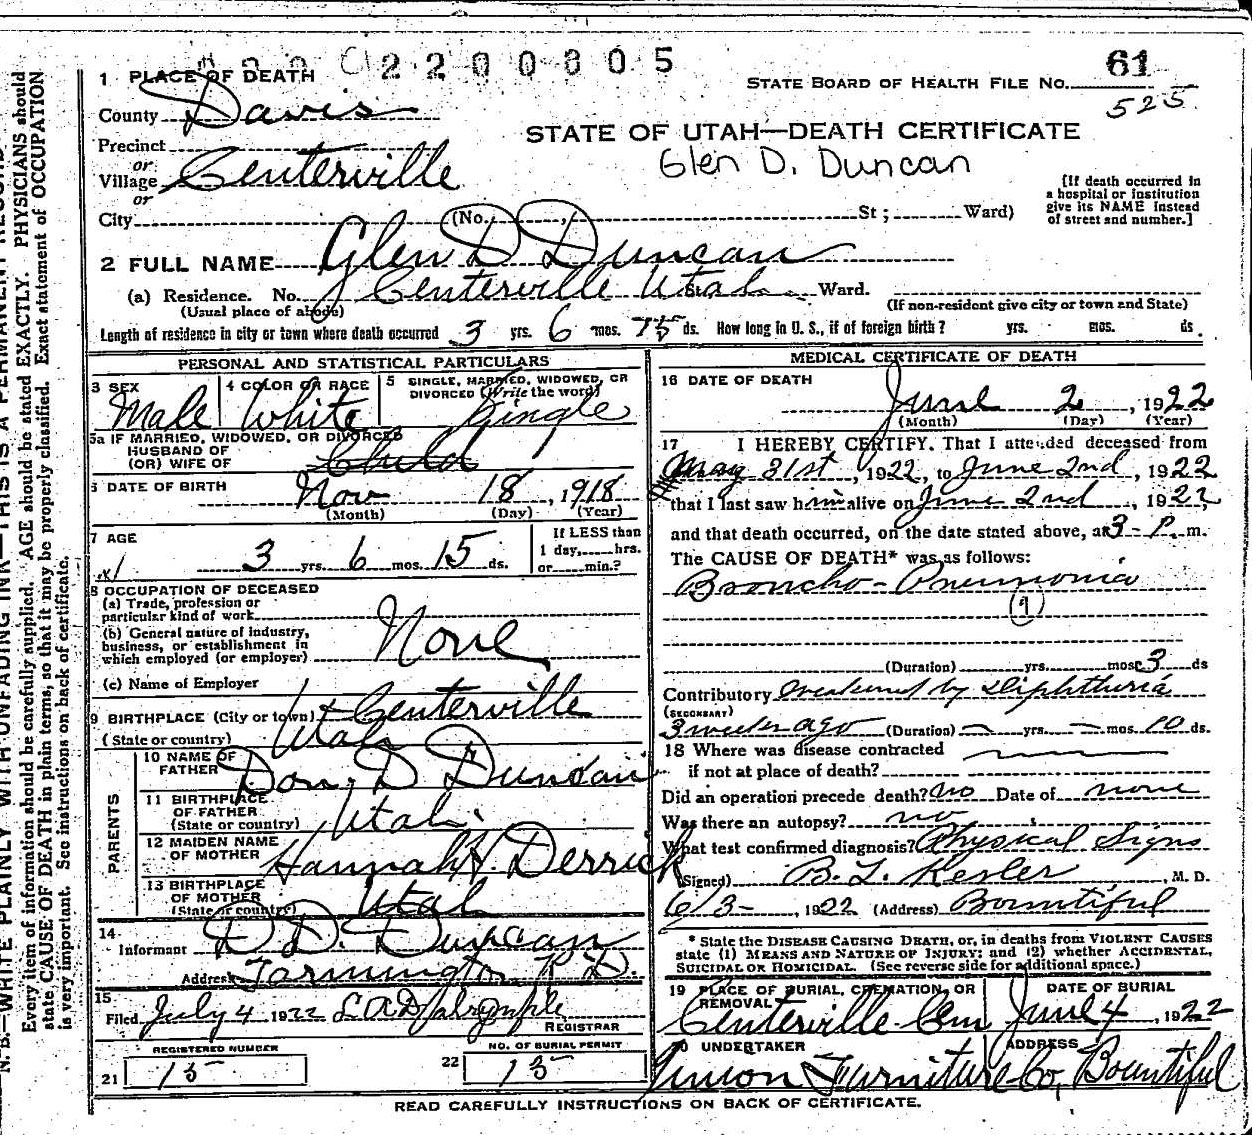 2200305
61
STATE BOARD OF HEALTH FILE No.
525
1 PLACE OF DEATH
County Davis
STATE OF UTAH—DEATH CERTIFICATE
Precinct
or
Village Centerville
Glen D. Duncan
or
City (No. , St ; Ward)
[If death occurred in
a hospital or institution
give its NAME instead
of street and number.]
2 FULL NAME Glen D Duncan
(a) Residence. No. Centerville Utah St. Ward.
(Usual place of abode) (If non-resident give city or town and State)
Length of residence in city or town where death occurred 3 yrs. 6 mos. 15 ds. How long in U. S., if of foreign birth? yrs. mos. ds.
PERSONAL AND STATISTICAL PARTICULARS
3 SEX
Male
4 COLOR OR RACE
White
5 SINGLE, MARRIED, WIDOWED, OR
DIVORCED (Write the word)
Single
5a IF MARRIED, WIDOWED, OR DIVORCED
HUSBAND OF
(OR) WIFE OF Child
6 DATE OF BIRTH Nov 18, 1918
(Month) (Day) (Year)
7 AGE
3 yrs. 6 mos. 15 ds.
If LESS than
1 day, hrs.
or min.?
8 OCCUPATION OF DECEASED
(a) Trade, profession or
particular kind of work
(b) General nature of industry,
business, or establishment in
which employed (or employer)
None
(c) Name of Employer
9 BIRTHPLACE (City or town) Centerville
(State or country) Utah
PARENTS
10 NAME OF
FATHER Don D Duncan
11 BIRTHPLACE
OF FATHER
(State or country) Utah
12 MAIDEN NAME
OF MOTHER Hannah V. Derrick
13 BIRTHPLACE
OF MOTHER
(State or country) Utah
14
Informant D D. Duncan
Address Farmington R D.
15
Filed July 4 1922 L A Dalrymple
REGISTRAR
REGISTERED NUMBER
21 15
NO. OF BURIAL PERMIT
22 15
MEDICAL CERTIFICATE OF DEATH
16 DATE OF DEATH
June 2, 1922
(Month) (Day) (Year)
17 I HEREBY CERTIFY, That I attended deceased from
May 31st, 1922, to June 2nd, 1922
that I last saw him alive on June 2nd, 1922,
and that death occurred, on the date stated above, at 3 P. m.
The CAUSE OF DEATH* was as follows:
Broncho-Pneumonia
(9)
(Duration) yrs. mos. 3 ds
Contributory Weakened by Diphtheria
(SECONDARY)
3 weeks ago (Duration) — yrs. — mos. 10 ds.
18 Where was disease contracted
if not at place of death?
Did an operation precede death? no Date of none
Was there an autopsy? no
What test confirmed diagnosis? Physical Signs
(Signed) B. L. Kesler M. D.
6/3-, 1922 (Address) Bountiful
* State the DISEASE CAUSING DEATH, or, in deaths from VIOLENT CAUSES
state (1) MEANS AND NATURE OF INJURY; and (2) whether ACCIDENTAL,
SUICIDAL OR HOMICIDAL. (See reverse side for additional space.)
19 PLACE OF BURIAL, CREMATION, OR
REMOVAL
Centerville Cem
DATE OF BURIAL
June 4, 1922
20 UNDERTAKER
ADDRESS
Union Furniture Co, Bountiful
READ CAREFULLY INSTRUCTIONS ON BACK OF CERTIFICATE.
N. B.—WRITE PLAINLY WITH UNFADING INK—THIS IS A PERMANENT RECORD
Every item of information should be carefully supplied. AGE should be stated EXACTLY. PHYSICIANS should
state CAUSE OF DEATH in plain terms, so that it may be properly classified. Exact statement of OCCUPATION
is very important. See instructions on back of certificate.